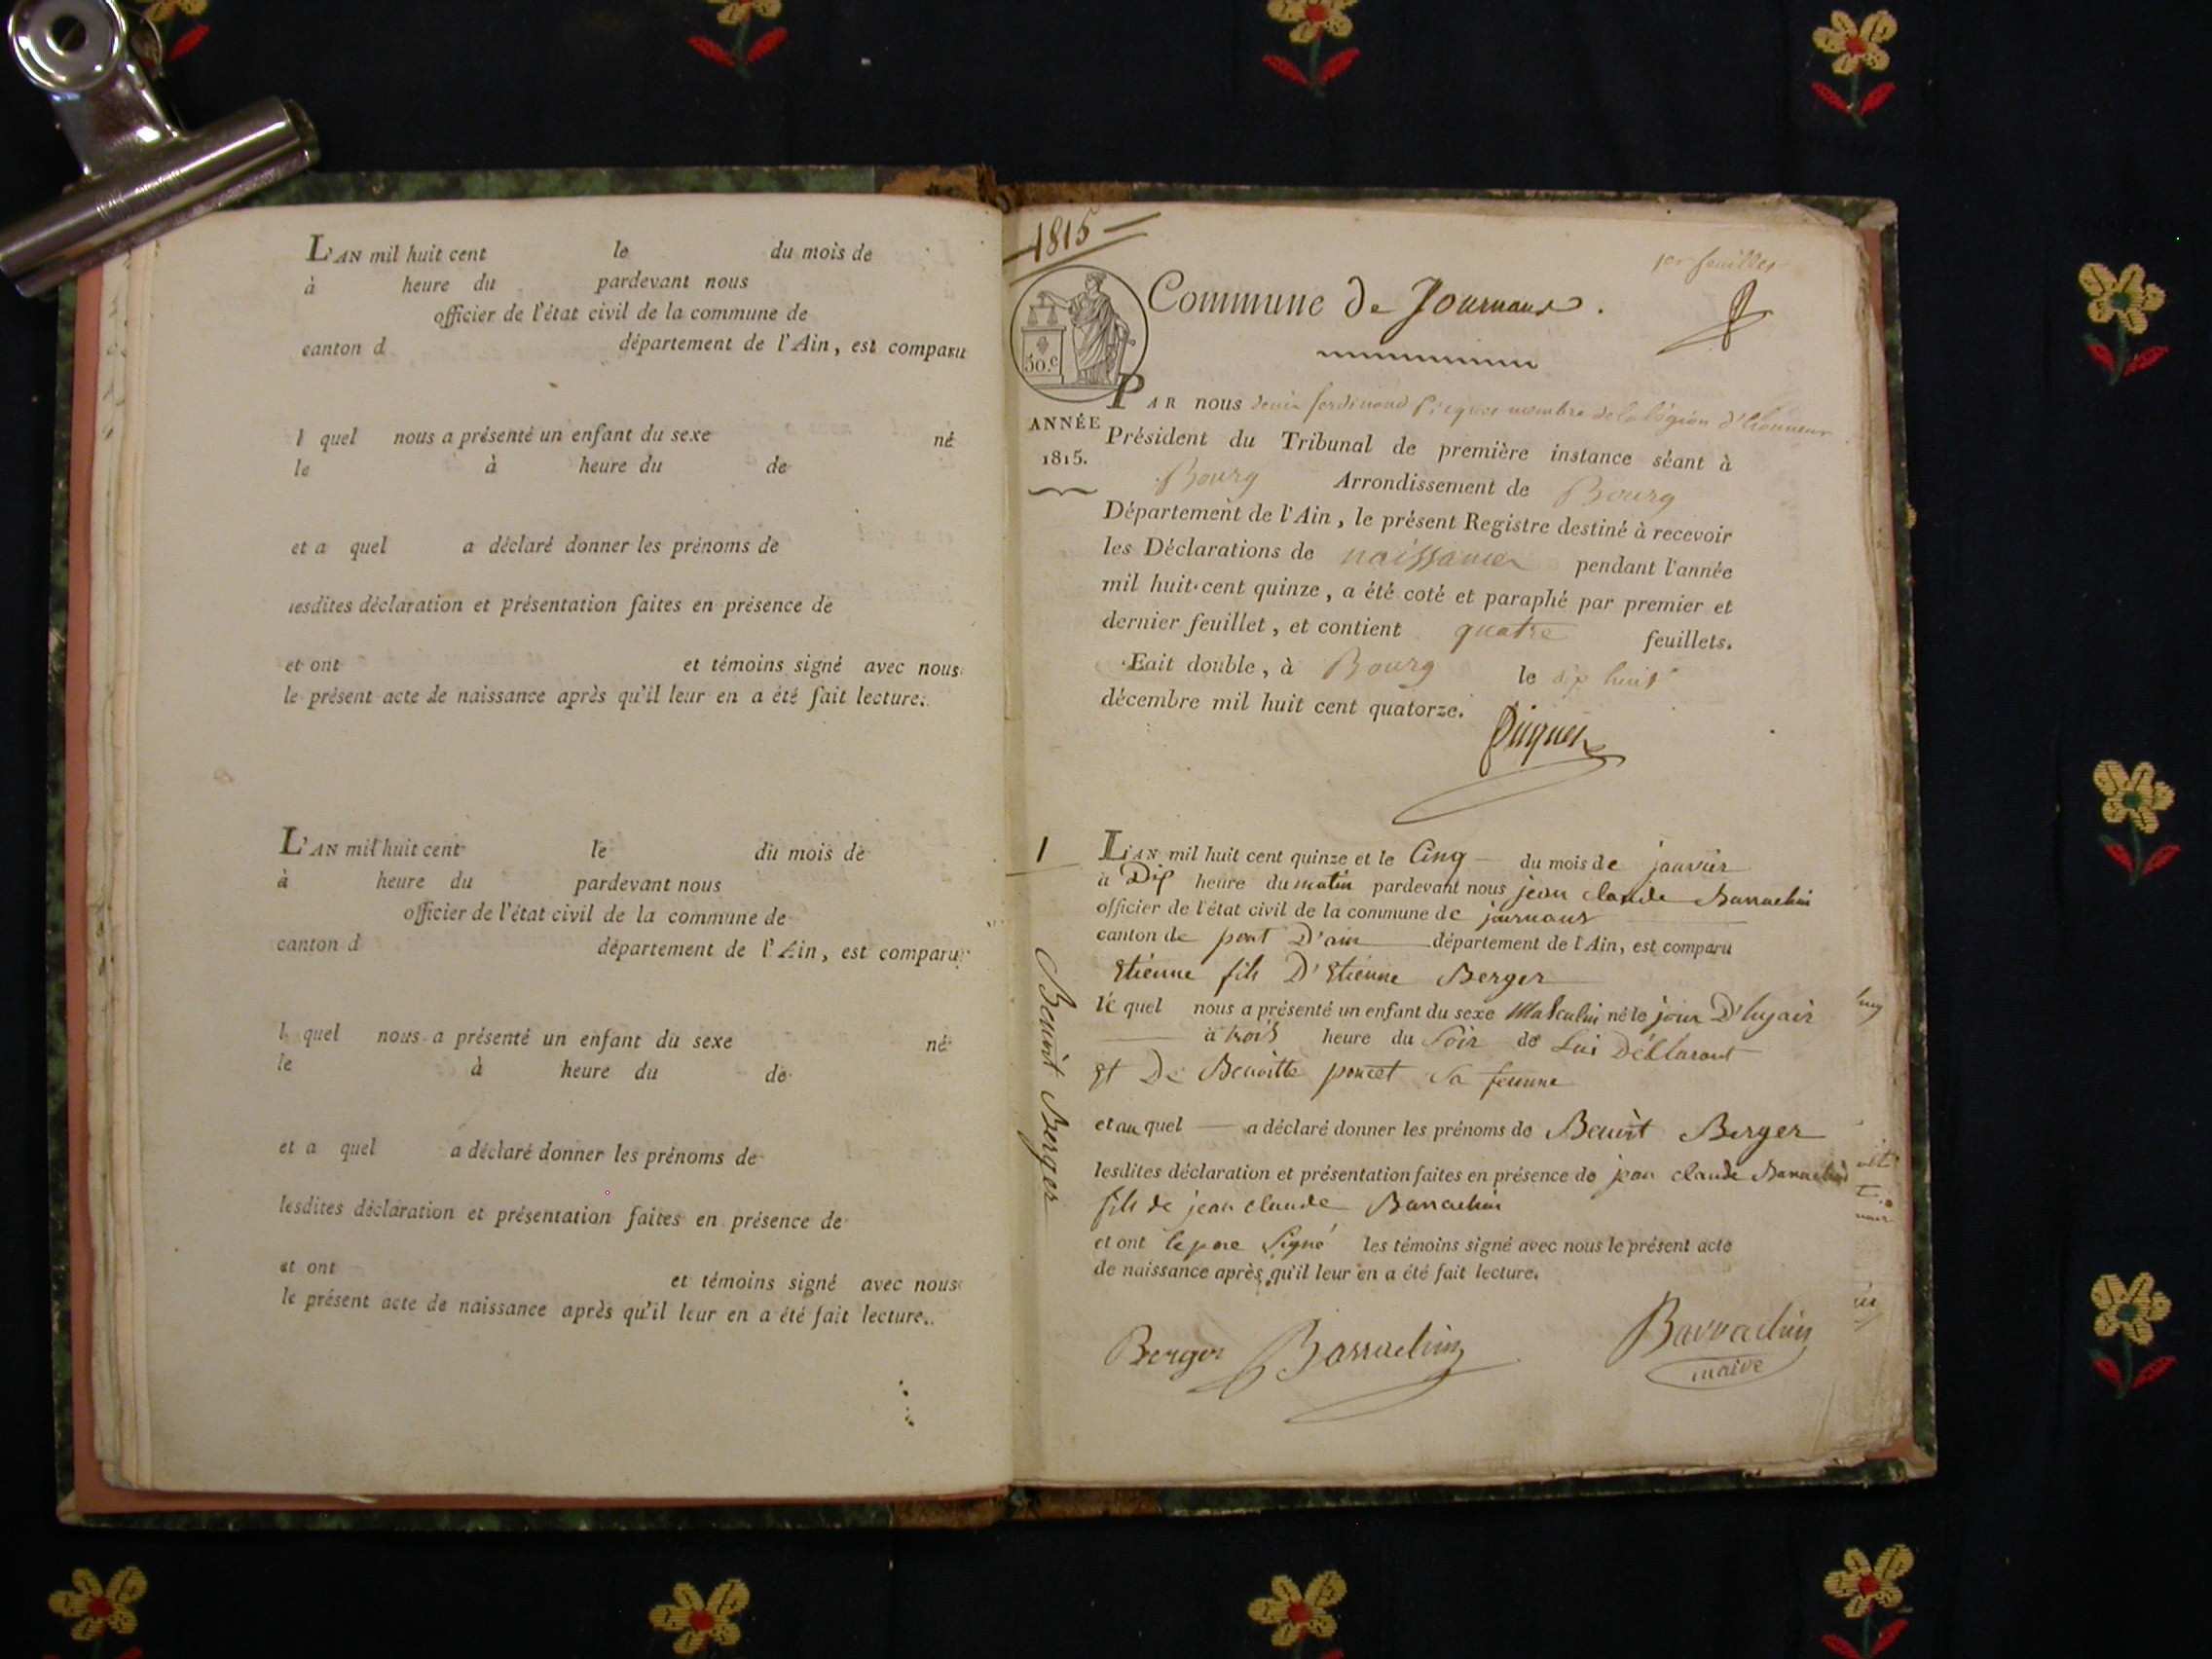 L'AN mil huit cent le du mois de
à heure du pardevant nous
officier de l'état civil de la commune de
canton d département de l'Ain, est comparu
l quel nous a présenté un enfant du sexe né
le à heure du de
et a quel a déclaré donner les prénoms de
lesdites déclaration et présentation faites en présence de
et ont et témoins signé avec nous
le présent acte de naissance après qu'il leur en a été fait lecture.
L'AN mil huit cent le du mois de
à heure du pardevant nous
officier de l'état civil de la commune de
canton d département de l'Ain, est comparu
l quel nous a présenté un enfant du sexe né
le à heure du de
et a quel a déclaré donner les prénoms de
lesdites déclaration et présentation faites en présence de
et ont et témoins signé avec nous
le présent acte de naissance après qu'il leur en a été fait lecture.
1815
1er feuillet
Commune de Journans.
50.c
ANNÉE
1815.
PAR nous ferdinand Picquet membre de la légion d'honneur
Président du Tribunal de première instance séant à
Bourg Arrondissement de Bourg
Département de l'Ain, le présent Registre destiné à recevoir
les Déclarations de naissances pendant l'année
mil huit-cent quinze, a été coté et paraphé par premier et
dernier feuillet, et contient quatre feuillets.
Fait double, à Bourg le dix huit
décembre mil huit cent quatorze.
Picquet
1
Benoit Berger
L'AN mil huit cent quinze et le Cinq du mois de janvier
à Dix heure du matin pardevant nous jean claude Barrachin
officier de l'état civil de la commune de journans
canton de pont D'ain département de l'Ain, est comparu
Etienne fils D'Etienne Berger
le quel nous a présenté un enfant du sexe Masculin né le jour D'hyair
à trois heure du Soir de Lui Déclarant
Et De Benoitte poncet Sa femme
et au quel a déclaré donner les prénoms de Benoit Berger
lesdites déclaration et présentation faites en présence de jean claude Barrachin
fils de jean claude Barrachin
et ont le pere Signé les témoins signé avec nous le présent acte
de naissance après qu'il leur en a été fait lecture.
Berger Barrachin Barrachin
maire